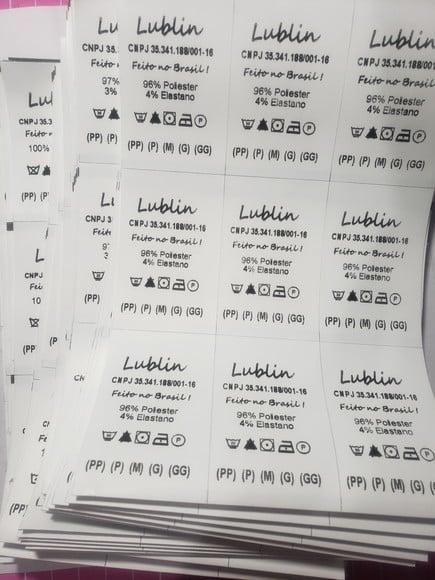 Lublin
CNPJ 35.
Feito
97%
3%
(PP) (P)
Lublin
CNPJ 35.341.188/001-16
Feito no Brasil!
96% Poliester
4% Elastano
(PP) (P) (M) (G) (GG)
Lublin
CNPJ 35.341.188/001-16
Feito no Brasil!
96% Poliester
4% Elastano
(PP) (P) (M) (G) (GG)
Lublin
CNPJ 35.341.188/001
Feito no Brasil!
96% Poliester
4% Elastano
(PP) (P) (M) (G) (GG)
CNPJ 35.341
100%
(PP) (P)
Lublin
CNPJ 35.341.188/001-16
Feito no Brasil!
96% Poliester
4% Elastano
(PP) (P) (M) (G) (GG)
Lublin
CNPJ 35.341.188/001-16
Feito no Brasil!
96% Poliester
4% Elastano
(PP) (P) (M) (G) (GG)
Lublin
CNPJ 35.341.188/001-16
Feito no Brasil!
96% Poliester
4% Elastano
(PP) (P) (M) (G) (GG)
Lublin
CNPJ 35.341.188/001-16
Feito no Brasil!
96% Poliester
4% Elastano
(PP) (P) (M) (G) (GG)
Lublin
CNPJ 35.341.188/001-16
Feito no Brasil!
96% Poliester
4% Elastano
(PP) (P) (M) (G) (GG)
Lublin
CNPJ 35.341.188/001-16
Feito no Brasil!
96% Poliester
4% Elastano
(PP) (P) (M) (G) (GG)